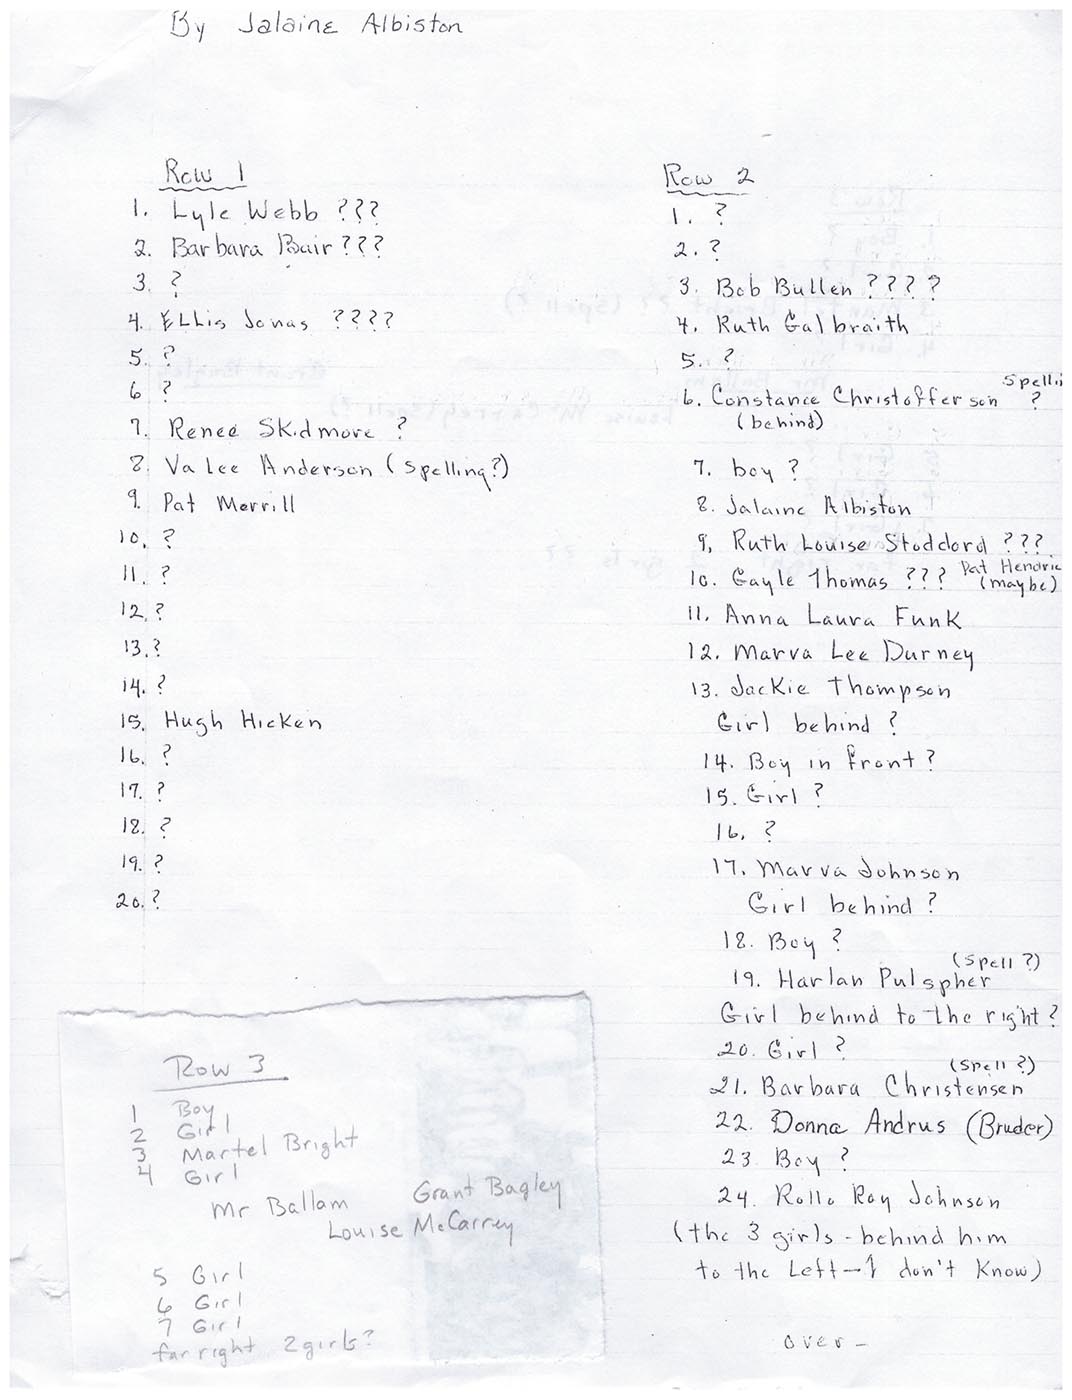 By Jalaine Albiston
Row 1
1. Lyle Webb ???
2. Barbara Bair ???
3. ?
4. Ellis Jonas ????
5. ?
6 ?
7. Renee Skidmore ?
8. Va Lee Anderson (spelling?)
9. Pat Merrill
10. ?
11. ?
12. ?
13. ?
14. ?
15. Hugh Hicken
16. ?
17. ?
18. ?
19. ?
20. ?
Row 2
1. ?
2. ?
3. Bob Bullen ????
4. Ruth Galbraith
5. ?
6. Constance Christofferson spelli ?
(behind)
7. boy ?
8. Jalaine Albiston
9, Ruth Louise Stoddord ???
10. Gayle Thomas ??? Pat Hendric (maybe)
11. Anna Laura Funk
12. Marva Lee Durney
13. Jackie Thompson
Girl behind ?
14. Boy in front ?
15. Girl ?
16. ?
17. Marva Johnson
Girl behind ?
18. Boy ?
19. Harlan Pulspher (spell ?)
Girl behind to the right ?
20. Girl ?
21. Barbara Christensen (spell ?)
22. Donna Andrus (Bruder)
23. Boy ?
24. Rollo Ray Johnson
(the 3 girls - behind him
to the left - I don't know)
over -
Row 3
1 Boy
2 Girl
3 Martel Bright
4 Girl
Mr Ballam Grant Bagley
Louise McCarrey
5 Girl
6 Girl
7 Girl
far right 2 girls?